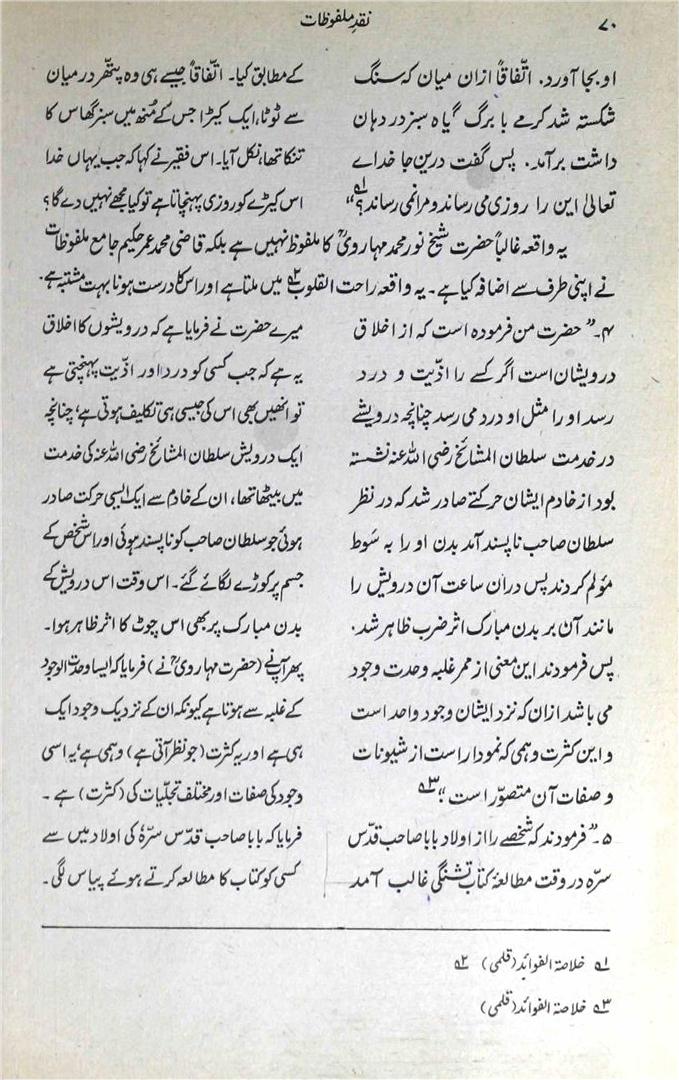 ۷۰
نقدِ ملفوظات
او بجا آورد. اتّفاقاً ازان میان کہ سنگ
شکستہ شد کرمے با برگ گیاہ سبز در دہان
داشت برآمد. پس گفت درین جا خداے
تعالیٰ این را روزی می رساند و مرا نمی رساند؟"۱؎
کے مطابق کیا۔ اتّفاقاً جیسے ہی وہ پتھر درمیان
سے ٹوٹا، ایک کیڑا جس کے مُنھ میں سبز گھاس کا
تنکا تھا، نکل آیا۔ اس فقیر نے کہا کہ جب یہاں خدا
اس کیڑے کو روزی پہنچاتا ہے تو کیا مجھے نہیں دے گا؟
یہ واقعہ غالباً حضرت شیخ نور محمد مہاروی ؒ کا ملفوظ نہیں ہے بلکہ قاضی محمد عمر حکیم جامع ملفوظات
نے اپنی طرف سے اضافہ کیا ہے۔ یہ واقعہ راحت القلوب۲؎ میں ملتا ہے اور اس کا درست ہونا بہت مشتبہ ہے۔
۴۔ "حضرت من فرمودہ است کہ از اخلاق
درویشان است اگر کسے را اذیّت و درد
رسد او را مثل او درد می رسد چنانچہ درویشے
در خدمت سلطان المشائخ رضی اللہ عنہ نشستہ
بود از خادم ایشان حرکتے صادر شد کہ در نظر
سلطان صاحب ناپسند آمد بدن او را بہ سَوط
مؤلم کردند پس دران ساعت آن درویش را
مانند آن بر بدن مبارک اثر ضرب ظاہر شد.
پس فرمودند این معنی از ممر غلبہ وحدت وجود
می باشد ازان کہ نزد ایشان وجود واحد است
و این کثرت وہمی کہ نمودار است از شیونات
و صفات آن متصوّر است"۳؎
میرے حضرت نے فرمایا ہے کہ درویشوں کا اخلاق
یہ ہے کہ جب کسی کو درد اور اذّیت پہنچتی ہے
تو انھیں بھی اس کی جیسی ہی تکلیف ہوتی ہے، چنانچہ
ایک درویش سلطان المشائخ رضی اللہ عنہ کی خدمت
میں بیٹھا تھا، ان کے خادم سے ایک ایسی حرکت صادر
ہوئی جو سلطان صاحب کو ناپسند ہوئی اور اس شخص کے
جسم پر کوڑے لگائے گئے۔ اس وقت اس درویش کے
بدن مبارک پر بھی اس چوٹ کا اثر ظاہر ہوا۔
پھر آپ نے (حضرت مہاروی ؒ نے) فرمایا کہ ایسا وحدت الوجود
کے غلبہ سے ہوتا ہے کیونکہ ان کے نزدیک وجود ایک
ہی ہے اور یہ کثرت (جو نظر آتی ہے) وہمی ہے، یہ اسی
وجود کی صفات اور مختلف تجلّیات کی (کثرت) ہے۔
۵۔ "فرمودند کہ شخصے را از اولاد بابا صاحب قدّس
سرّہ در وقت مطالعۂ کتاب تشنگی غالب آمد
فرمایا کہ بابا صاحب قدّس سرّہٗ کی اولاد میں سے
کسی کو کتاب کا مطالعہ کرتے ہوئے پیاس لگی۔
۱؎ خلاصۃ الفوائد (قلمی) ۲؎
۳؎ خلاصۃ الفوائد (قلمی)